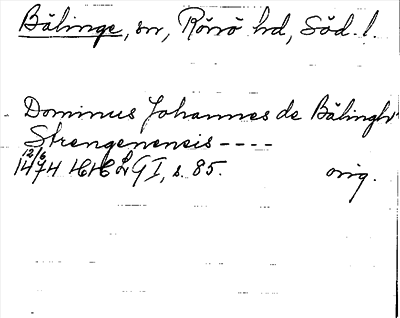 Bälinge, sn, Rönö hd, Söd. l.
Dominus Johannes de Bälingh
Strengenensis ----
12/6
1474 HH L G I, s. 85. orig.